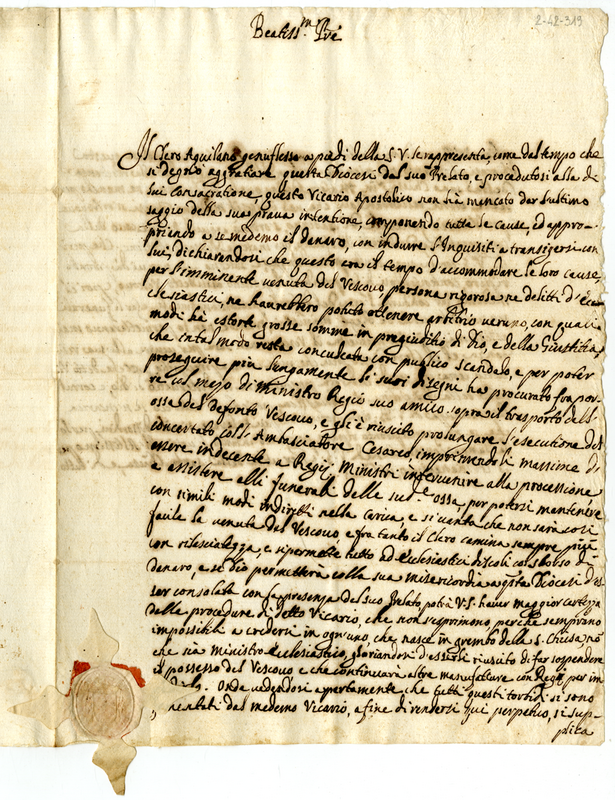 2-42-319
Beatiss.mo Pre
Il Clero Aquilano genuflesso a piedi della S. V. le rappresenta, come dal tempo che
si degnò aggratiare questa Diocesi del suo Prelato, e procedutosi alla di
lui consacratione, questo Vicario Apostolico non hà mancato dar l'ultimo
saggio della sua prava intentione, componendo tutte le cause, ed appro-
priando a se medemo il danaro, con indurre l'Inquisiti a transigersi con
lui, dichiarandosi che questo era il tempo d'accommodare le loro cause,
per l'imminente venuta del Vescovo persona rigorosa ne delitti d'Ec
clesiastici, ne haurebbero potuto ottenere arbitrio veruno, con quali
modi hà estorte grosse somme in pregiuditio di Dio, e della Giustitia,
che in tal modo resta conculcata con publico scandalo, e per poter
proseguire più lungamente li suoi disegni ha procurato frapor
re col mezo di Ministro Regio suo amico sopra il trasporto dell'
ossa del defonto Vescovo, e gli è riuscito prolungare l'esecutione del
concertato coll' Ambasciatore Cesareo, imprimendoli massime di
essere indecente a Regij Ministri intervenire alla processione
e assistere alli funerali delle sud.e ossa, per potersi mantenere
con simili modi indiretti nella carica, e si vanta che non sarà così
facile la venuta del Vescovo, e fra tanto il Clero camina sempre più
con rilasciatezza, e si permette tutto ad Ecclesiastici discoli con sborso di
danaro, e se Dio permetterà colla sua misericordia a q.sta Diocesi d'es
ser consolata con la presenza del suo Prelato, potrà V.S. haver maggior certezza
delle procedure di detto Vicario, che non s'esprimono perche sempirano
impossibili a credersi in ogn'uno, che nasce in grembo della S. Chiesa, nò
che sia ministro Ecclesiastico, gloriandosi d'esserli riuscito di far sospendere
il possesso del Vescovo e che continuarà altre manifatture con Regij per im
Onde vedendosi apertamente che tutti questi torbidi si sono
mentati dal medemo Vicario, a fine di rendersi qui perpetuo, si sup-
plica